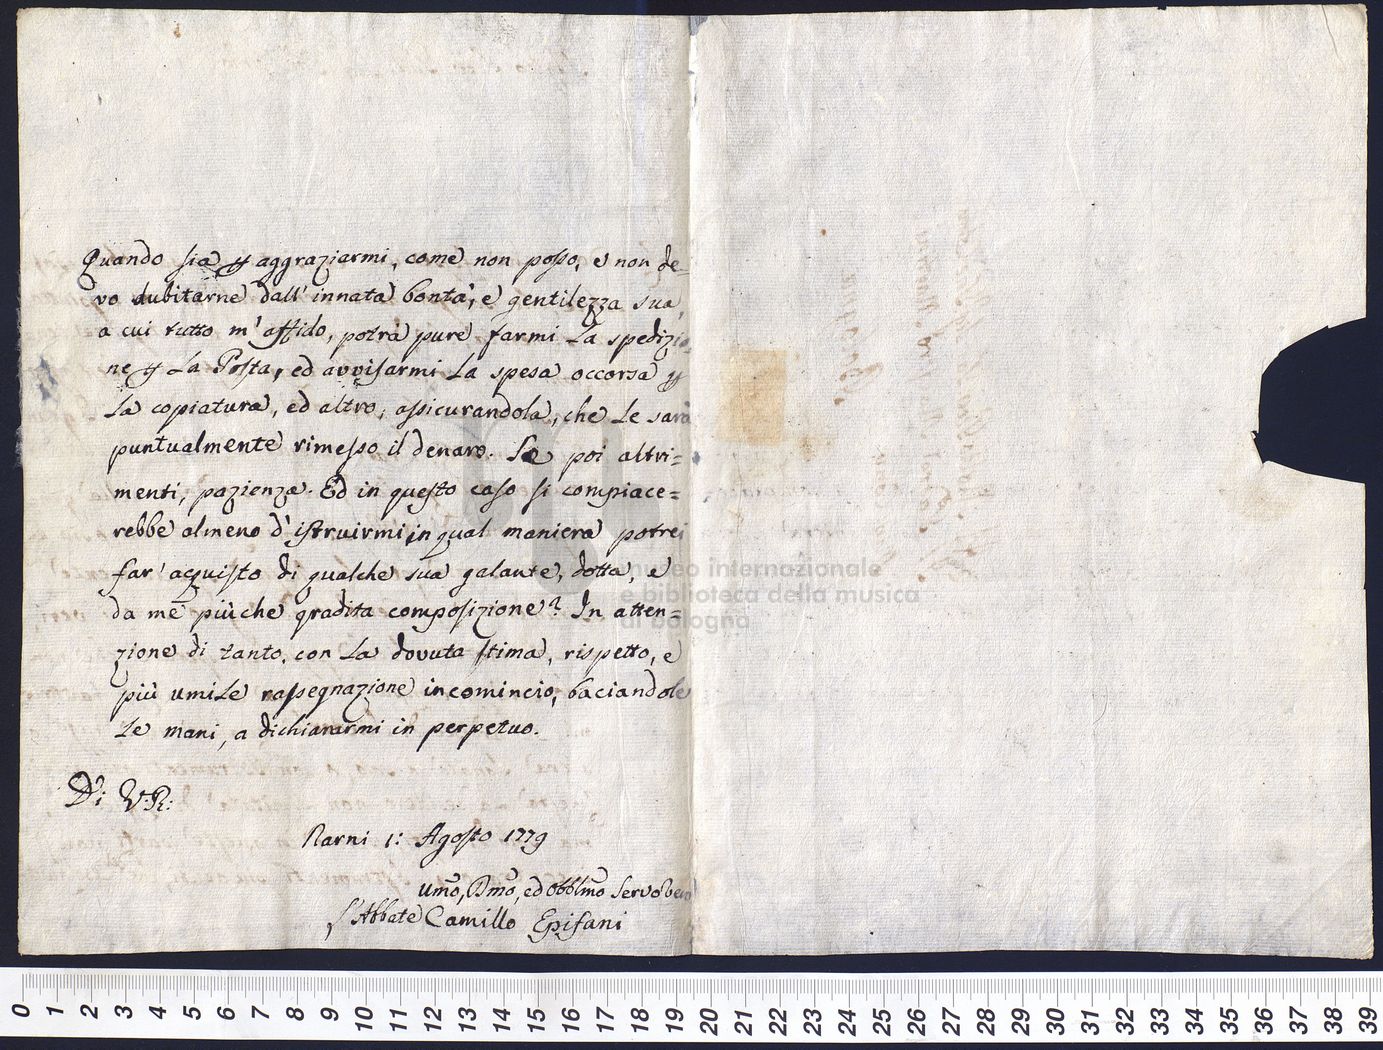 Quando sia p aggraziarmi, come non posso, e non de=
vo dubitarne dall' innata bontà, e gentilezza sua,
a cui tutto m' affido, potrà pure farmi la spedizio=
ne p la Posta, ed avvisarmi la spesa occorsa p
la copiatura, ed altro, assicurandola, che le sarà
puntualmente rimesso il denaro. Se poi altri=
menti, pazienza. Ed in questo caso si compiace=
rebbe almeno d' istruirmi in qual maniera potrei
far' acquisto di qualche sua galante, dotta, e
da me più che gradita composizione? In atten=
zione di tanto, con la dovuta stima, rispetto, e
più umile rassegnazione incomincio, baciandole
le mani, a dichiararmi in perpetuo.
Di V: R:
Narni 1: Agosto 1779
Umo, Dmo, ed Obblmo Servo Vero
l'Abbate Camillo Epifani
museo internazionale
e biblioteca della musica
di bologna
0 1 2 3 4 5 6 7 8 9 10 11 12 13 14 15 16 17 18 19 20 21 22 23 24 25 26 27 28 29 30 31 32 33 34 35 36 37 38 39